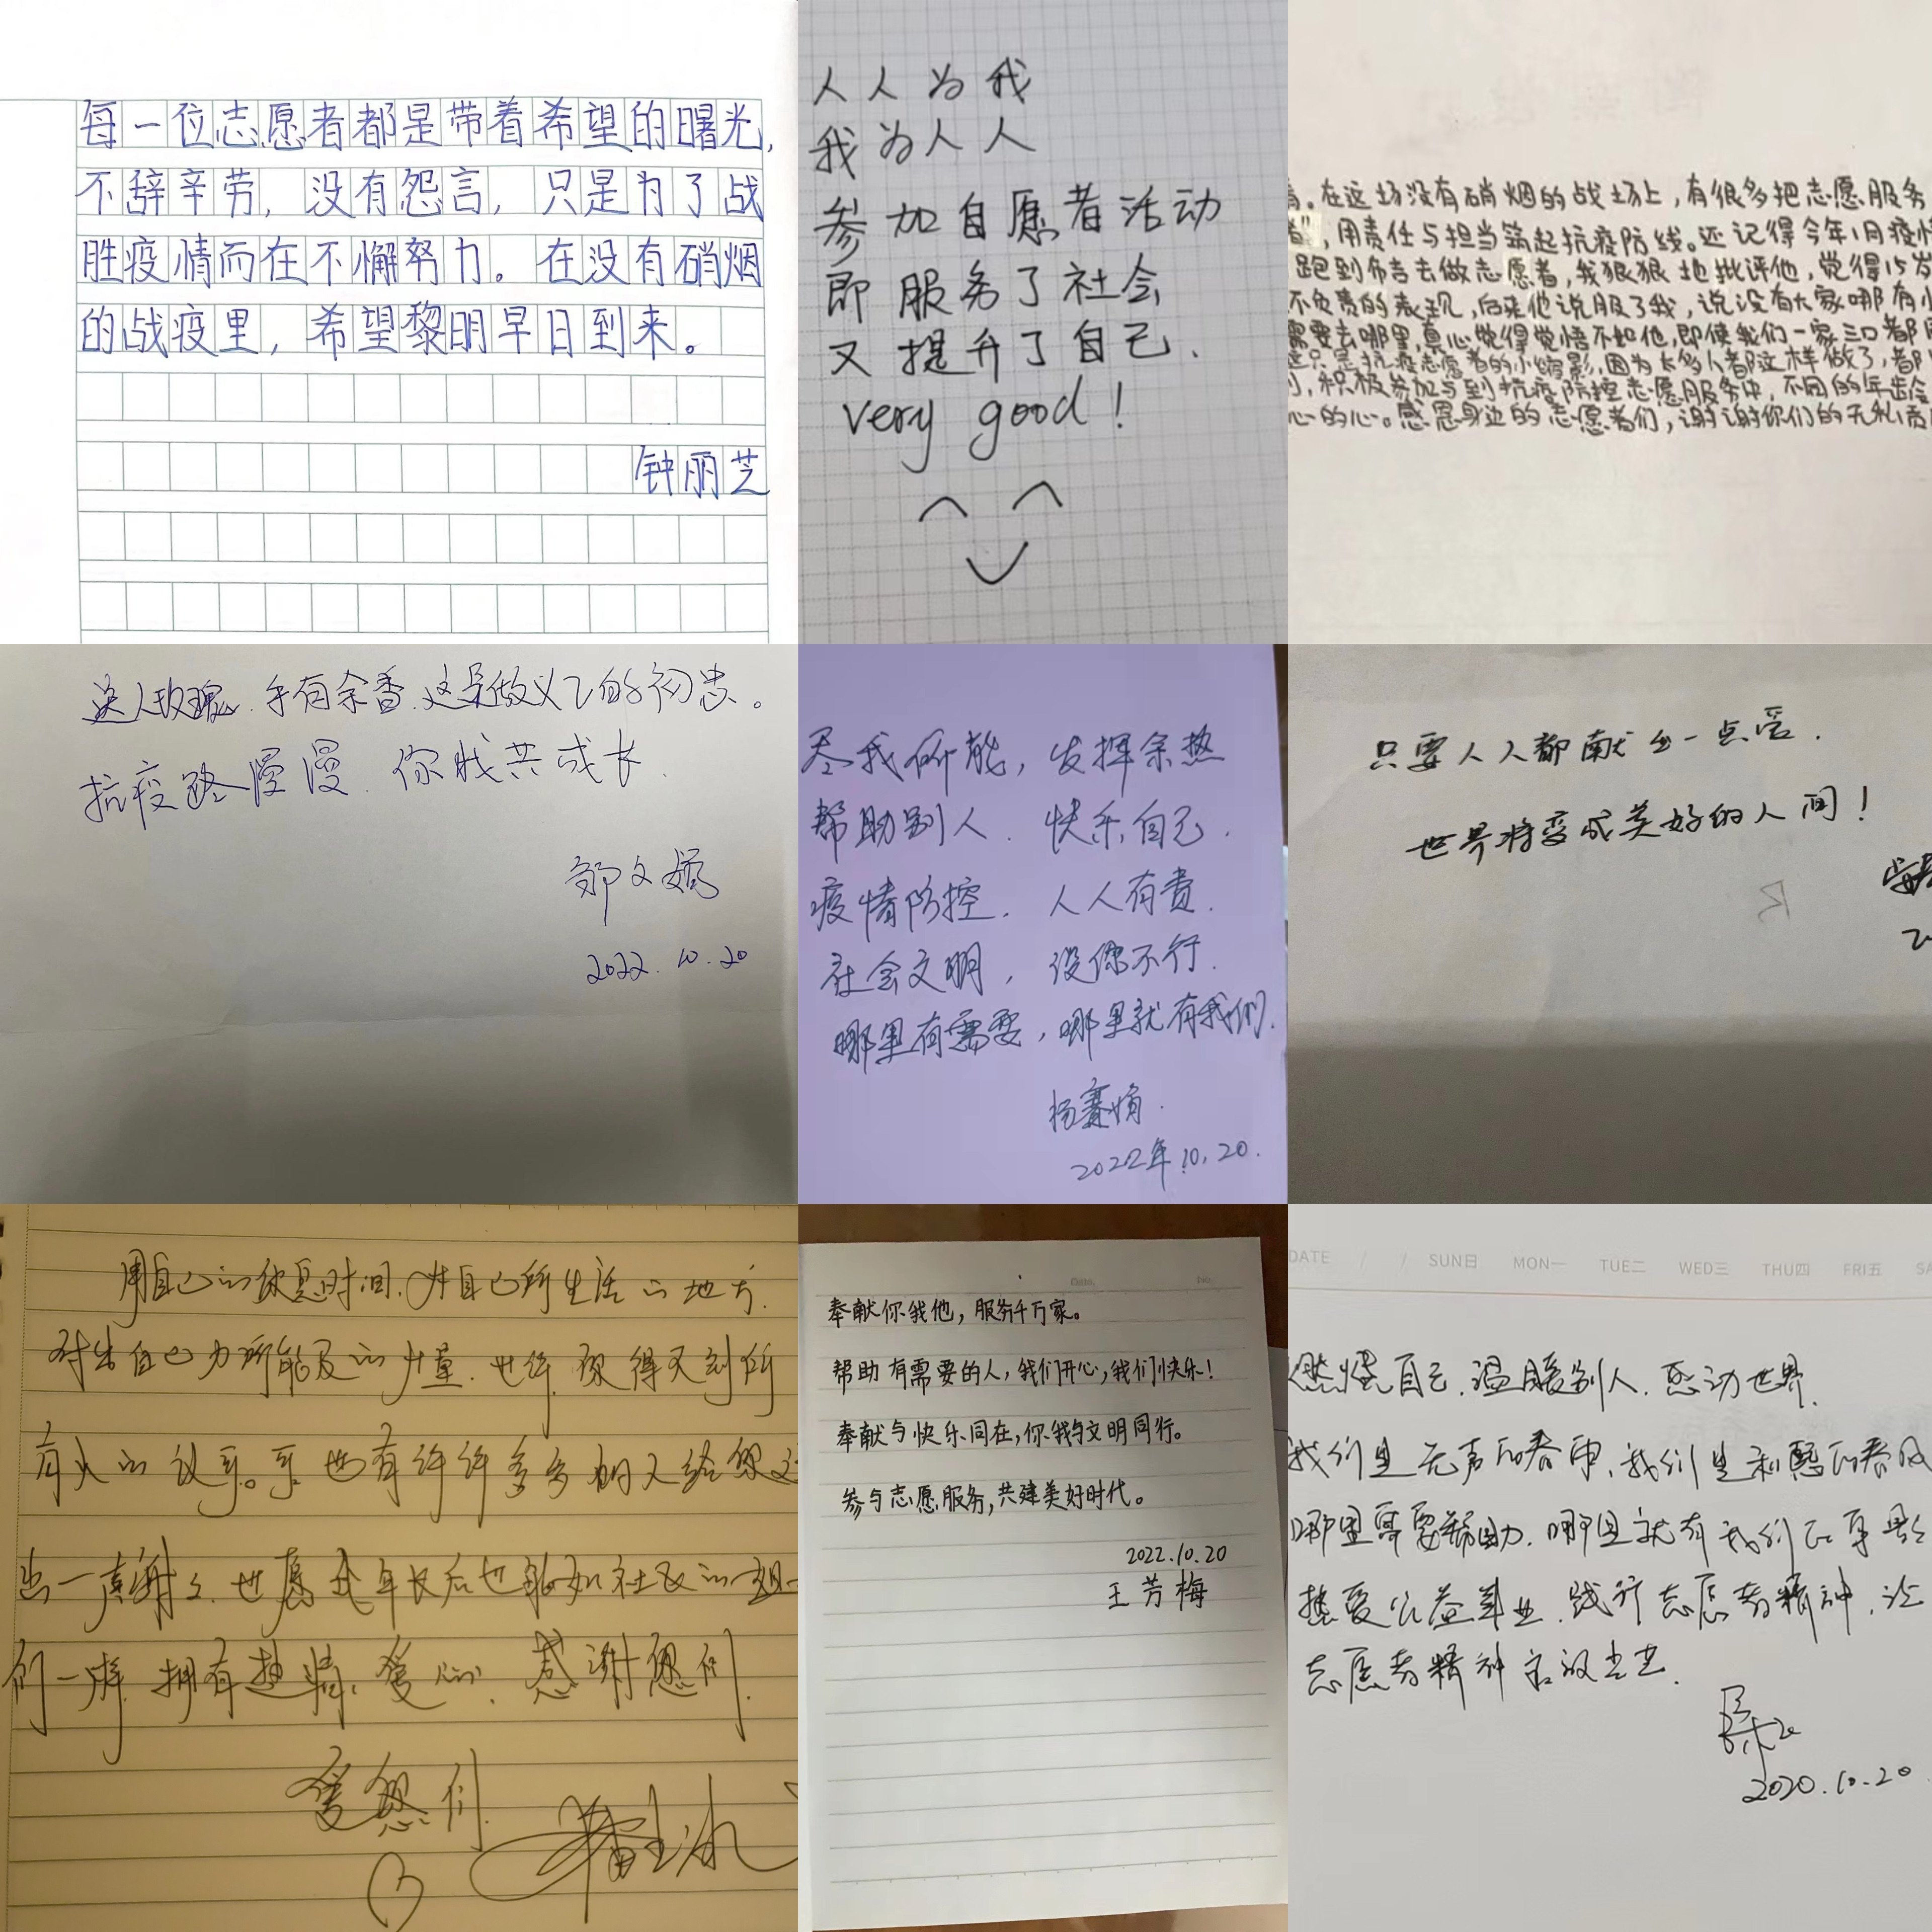 每一位志愿者都是带着希望的曙光,
不辞辛劳,没有怨言,只是为了战
胜疫情而在不懈努力。在没有硝烟
的战疫里,希望黎明早日到来。
钟丽芝
人人为我
我为人人
参加自愿者活动
即服务了社会
又提升了自己.
very good!
。在这场没有硝烟的战场上,有很多把志愿服务
",用责任与担当筑起抗疫防线。还记得今年1月疫情
跑到布吉去做志愿者,我狠狠地批评他,觉得15岁
不负责的表现,后来他说服了我,说没有大家哪有小
需要去哪里,真心觉得觉悟不如他,即使我们一家三口都
这只是抗疫志愿者的小缩影,因为太多人都这样做了,都
,积极参加与到抗疫防控志愿服务中,不同的年龄
心的心。感恩身边的志愿者们,谢谢你们的无私
送人玫瑰.手有余香.这是做义工的初忠。
抗疫路漫漫.你我共成长.
邹文娟
2022.10.20
尽我所能,发挥余热
帮助别人.快乐自己.
疫情防控.人人有责.
社会文明,没你不行.
哪里有需要,哪里就有我们.
杨赛娟.
2022年.10.20.
只要人人都献出一点爱.
世界将变成美好的人间!
用自己的休息时间.为自己所生活的地方.
付出自己力所能及的力量.也许.很得不到所
有人的认可。可也有许许多多的人给您
出一声谢了.也愿我年长后也能如社区的
们一样.拥有热情、爱心、感谢您们.
爱您们
奉献你我他,服务千万家。
帮助有需要的人,我们开心,我们快乐!
奉献与快乐同在,你我与文明同行。
参与志愿服务,共建美好时代。
2022.10.20
王芳梅
DATE / / SUN日 MON一 TUE二 WED三 THU四 FRI五 SA
燃烧自己.温暖别人.感动世界.
我们是无声的春雨,我们是和熙的春风
哪里需要帮助.哪里就有我们的身影
热爱公益事业.践行志愿者精神.让
志愿者精神宣扬出去.
2020.10.20